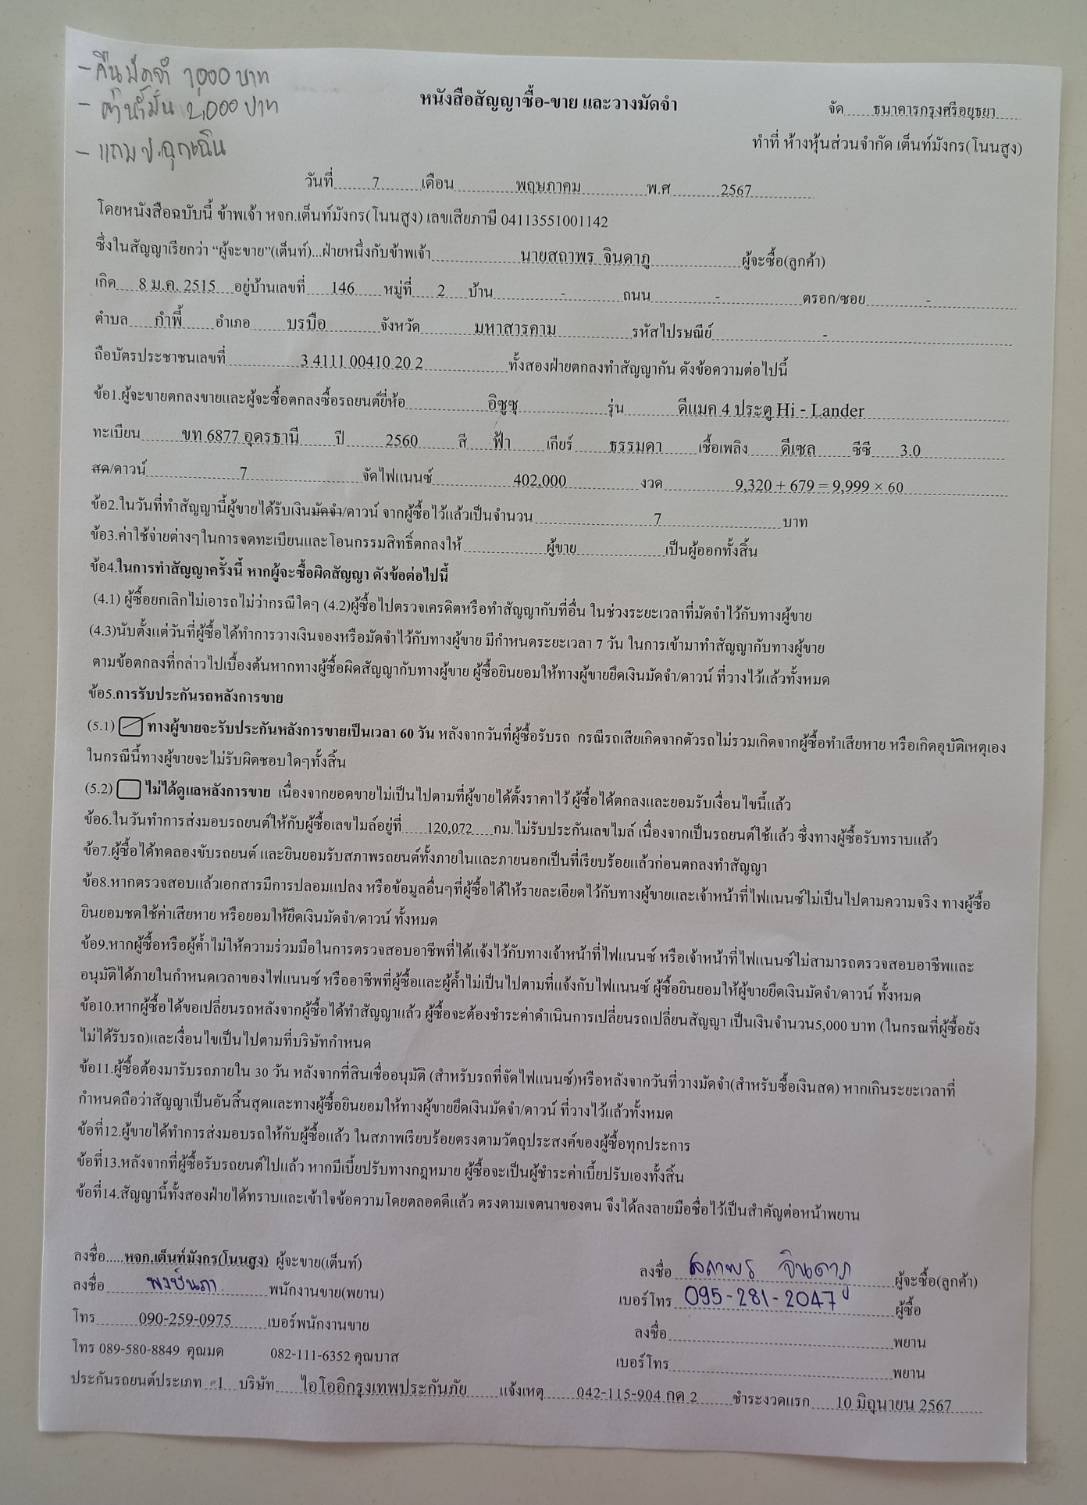 - คืนมัดจำ 1000 บาท
- ค่าน้ำมัน 2,000 บาท
- แถม ป.ฉุกเฉิน
หนังสือสัญญาซื้อ-ขาย และวางมัดจำ
จัด.....ธนาคารกรุงศรีอยุธยา.....
ทำที่ ห้างหุ้นส่วนจำกัด เต็นท์มังกร(โนนสูง)
วันที่.....7.....เดือน.....พฤษภาคม.....พ.ศ.....2567.....
โดยหนังสือฉบับนี้ ข้าพเจ้า หจก.เต็นท์มังกร(โนนสูง) เลขเสียภาษี 04113551001142
ซึ่งในสัญญาเรียกว่า “ผู้จะขาย”(เต็นท์)...ฝ่ายหนึ่งกับข้าพเจ้า.....นายสถาพร จินดาภู.....ผู้จะซื้อ(ลูกค้า)
เกิด.....8 ม.ค. 2515.....อยู่บ้านเลขที่.....146.....หมู่ที่.....2.....บ้าน.....-.....ถนน.....-.....ตรอก/ซอย.....-.....
ตำบล.....กำพี้.....อำเภอ.....บรบือ.....จังหวัด.....มหาสารคาม.....รหัสไปรษณีย์.....-.....
ถือบัตรประชาชนเลขที่.....3 4111 00410 20 2.....ทั้งสองฝ่ายตกลงทำสัญญากัน ดังข้อความต่อไปนี้
ข้อ1.ผู้จะขายตกลงขายและผู้จะซื้อตกลงซื้อรถยนต์ยี่ห้อ.....อีซูซุ.....รุ่น.....ดีแมค 4 ประตู Hi - Lander.....
ทะเบียน.....ขท 6877 อุดรธานี.....ปี.....2560.....สี.....ฟ้า.....เกียร์.....ธรรมดา.....เชื้อเพลิง.....ดีเซล.....ซีซี.....3.0.....
สด/ดาวน์.....7.....จัดไฟแนนซ์.....402,000.....งวด.....9,320 + 679 = 9,999 × 60
ข้อ2.ในวันที่ทำสัญญานี้ผู้ขายได้รับเงินมัดจำ/ดาวน์ จากผู้ซื้อไว้แล้วเป็นจำนวน.....7.....บาท
ข้อ3.ค่าใช้จ่ายต่างๆในการจดทะเบียนและโอนกรรมสิทธิ์ตกลงให้.....ผู้ขาย.....เป็นผู้ออกทั้งสิ้น
ข้อ4.ในการทำสัญญาครั้งนี้ หากผู้จะซื้อผิดสัญญา ดังข้อต่อไปนี้
(4.1) ผู้ซื้อยกเลิกไม่เอารถไม่ว่ากรณีใดๆ (4.2)ผู้ซื้อไปตรวจเครดิตหรือทำสัญญากับที่อื่น ในช่วงระยะเวลาที่มัดจำไว้กับทางผู้ขาย
(4.3)นับตั้งแต่วันที่ผู้ซื้อได้ทำการวางเงินจองหรือมัดจำไว้กับทางผู้ขาย มีกำหนดระยะเวลา 7 วัน ในการเข้ามาทำสัญญากับทางผู้ขาย
ตามข้อตกลงที่กล่าวไปเบื้องต้นหากทางผู้ซื้อผิดสัญญากับทางผู้ขาย ผู้ซื้อยินยอมให้ทางผู้ขายยึดเงินมัดจำ/ดาวน์ ที่วางไว้แล้วทั้งหมด
ข้อ5.การรับประกันรถหลังการขาย
(5.1) ทางผู้ขายจะรับประกันหลังการขายเป็นเวลา 60 วัน หลังจากวันที่ผู้ซื้อรับรถ กรณีรถเสียเกิดจากตัวรถไม่รวมเกิดจากผู้ซื้อทำเสียหาย หรือเกิดอุบัติเหตุเอง
ในกรณีนี้ทางผู้ขายจะไม่รับผิดชอบใดๆทั้งสิ้น
(5.2) ไม่ได้ดูแลหลังการขาย เนื่องจากยอดขายไม่เป็นไปตามที่ผู้ขายได้ตั้งราคาไว้ ผู้ซื้อได้ตกลงและยอมรับเงื่อนไขนี้แล้ว
ข้อ6.ในวันทำการส่งมอบรถยนต์ให้กับผู้ซื้อเลขไมล์อยู่ที่.....120,072.....กม. ไม่รับประกันเลขไมล์ เนื่องจากเป็นรถยนต์ใช้แล้ว ซึ่งทางผู้ซื้อรับทราบแล้ว
ข้อ7.ผู้ซื้อได้ทดลองขับรถยนต์ และยินยอมรับสภาพรถยนต์ทั้งภายในและภายนอกเป็นที่เรียบร้อยแล้วก่อนตกลงทำสัญญา
ข้อ8.หากตรวจสอบแล้วเอกสารมีการปลอมแปลง หรือข้อมูลอื่นๆที่ผู้ซื้อได้ให้รายละเอียดไว้กับทางผู้ขายและเจ้าหน้าที่ไฟแนนซ์ไม่เป็นไปตามความจริง ทางผู้ซื้อ
ยินยอมชดใช้ค่าเสียหาย หรือยอมให้ยึดเงินมัดจำ/ดาวน์ ทั้งหมด
ข้อ9.หากผู้ซื้อหรือผู้ค้ำไม่ให้ความร่วมมือในการตรวจสอบอาชีพที่ได้แจ้งไว้กับทางเจ้าหน้าที่ไฟแนนซ์ หรือเจ้าหน้าที่ไฟแนนซ์ไม่สามารถตรวจสอบอาชีพและ
อนุมัติได้ภายในกำหนดเวลาของไฟแนนซ์ หรืออาชีพที่ผู้ซื้อและผู้ค้ำไม่เป็นไปตามที่แจ้งกับไฟแนนซ์ ผู้ซื้อยินยอมให้ผู้ขายยึดเงินมัดจำ/ดาวน์ ทั้งหมด
ข้อ10.หากผู้ซื้อได้ขอเปลี่ยนรถหลังจากผู้ซื้อได้ทำสัญญาแล้ว ผู้ซื้อจะต้องชำระค่าดำเนินการเปลี่ยนรถเปลี่ยนสัญญา เป็นเงินจำนวน5,000 บาท (ในกรณีที่ผู้ซื้อยัง
ไม่ได้รับรถ)และเงื่อนไขเป็นไปตามที่บริษัทกำหนด
ข้อ11.ผู้ซื้อต้องมารับรถภายใน 30 วัน หลังจากที่สินเชื่ออนุมัติ (สำหรับรถที่จัดไฟแนนซ์)หรือหลังจากวันที่วางมัดจำ(สำหรับซื้อเงินสด) หากเกินระยะเวลาที่
กำหนดถือว่าสัญญาเป็นอันสิ้นสุดและทางผู้ซื้อยินยอมให้ทางผู้ขายยึดเงินมัดจำ/ดาวน์ ที่วางไว้แล้วทั้งหมด
ข้อที่12.ผู้ขายได้ทำการส่งมอบรถให้กับผู้ซื้อแล้ว ในสภาพเรียบร้อยตรงตามวัตถุประสงค์ของผู้ซื้อทุกประการ
ข้อที่13.หลังจากที่ผู้ซื้อรับรถยนต์ไปแล้ว หากมีเบี้ยปรับทางกฎหมาย ผู้ซื้อจะเป็นผู้ชำระค่าเบี้ยปรับเองทั้งสิ้น
ข้อที่14.สัญญานี้ทั้งสองฝ่ายได้ทราบและเข้าใจข้อความโดยตลอดดีแล้ว ตรงตามเจตนาของตน จึงได้ลงลายมือชื่อไว้เป็นสำคัญต่อหน้าพยาน
ลงชื่อ.....หจก.เต็นท์มังกร(โนนสูง) ผู้จะขาย(เต็นท์)
ลงชื่อ.....สถาพร จินดาภู.....ผู้จะซื้อ(ลูกค้า)
ลงชื่อ.....พนักงานขาย(พยาน)
เบอร์โทร.....095-281-2047.....ผู้ซื้อ
โทร.....090-259-0975.....เบอร์พนักงานขาย
ลงชื่อ.....พยาน
โทร 089-580-8849 คุณมด 082-111-6352 คุณบาส
เบอร์โทร.....พยาน
ประกันรถยนต์ประเภท...1...บริษัท.....ไอโออิกรุงเทพประกันภัย.....แจ้งเหตุ.....042-115-904 กด 2.....ชำระงวดแรก.....10 มิถุนายน 2567.....